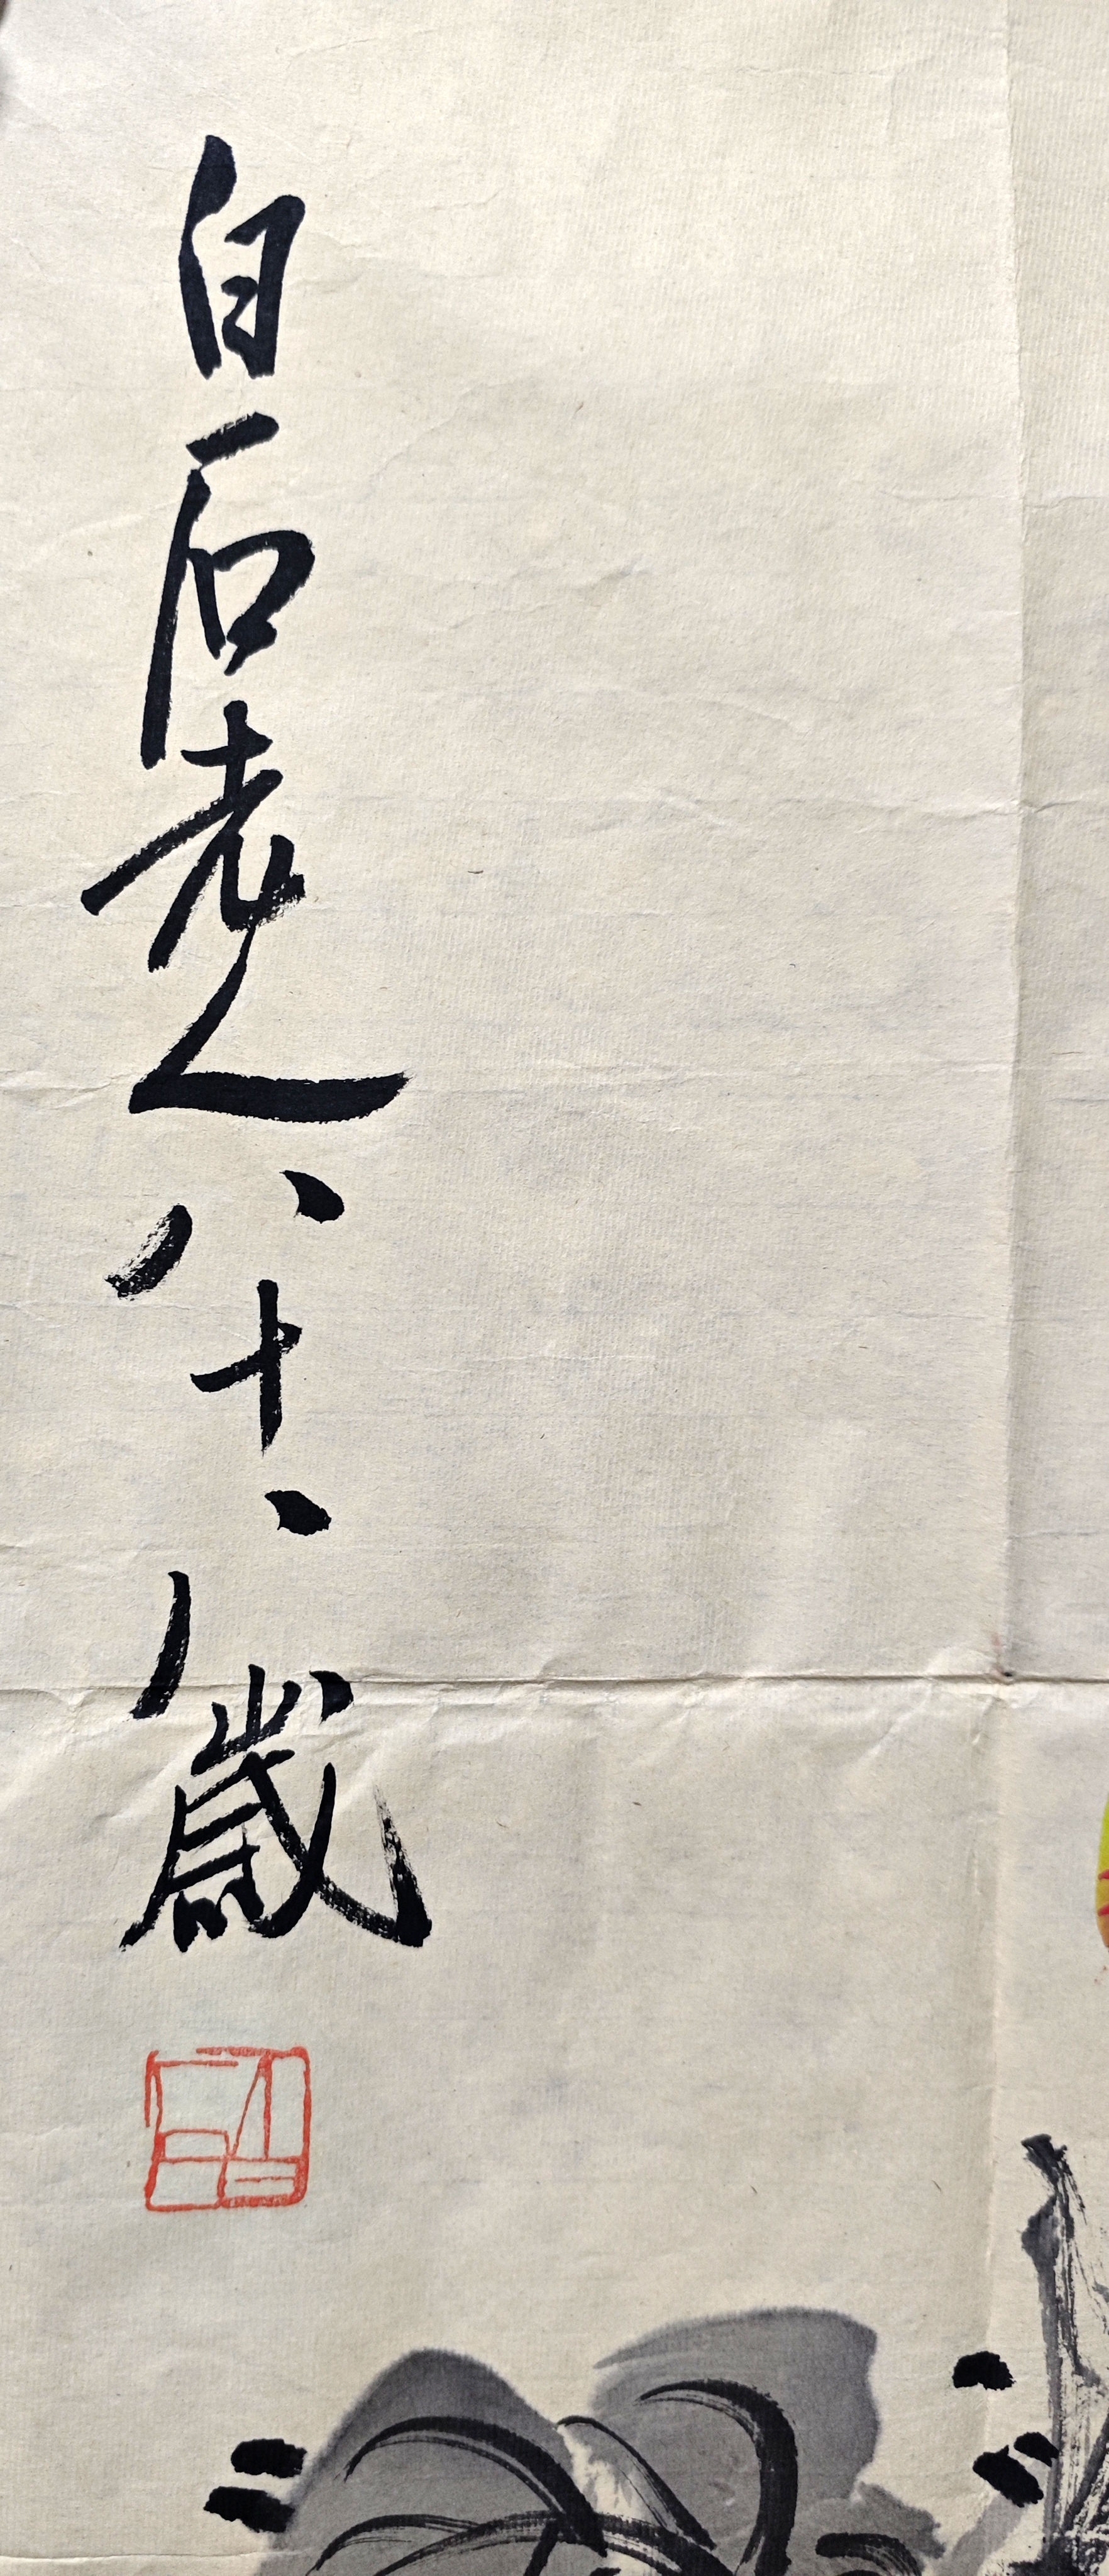 白石老人八十八歲